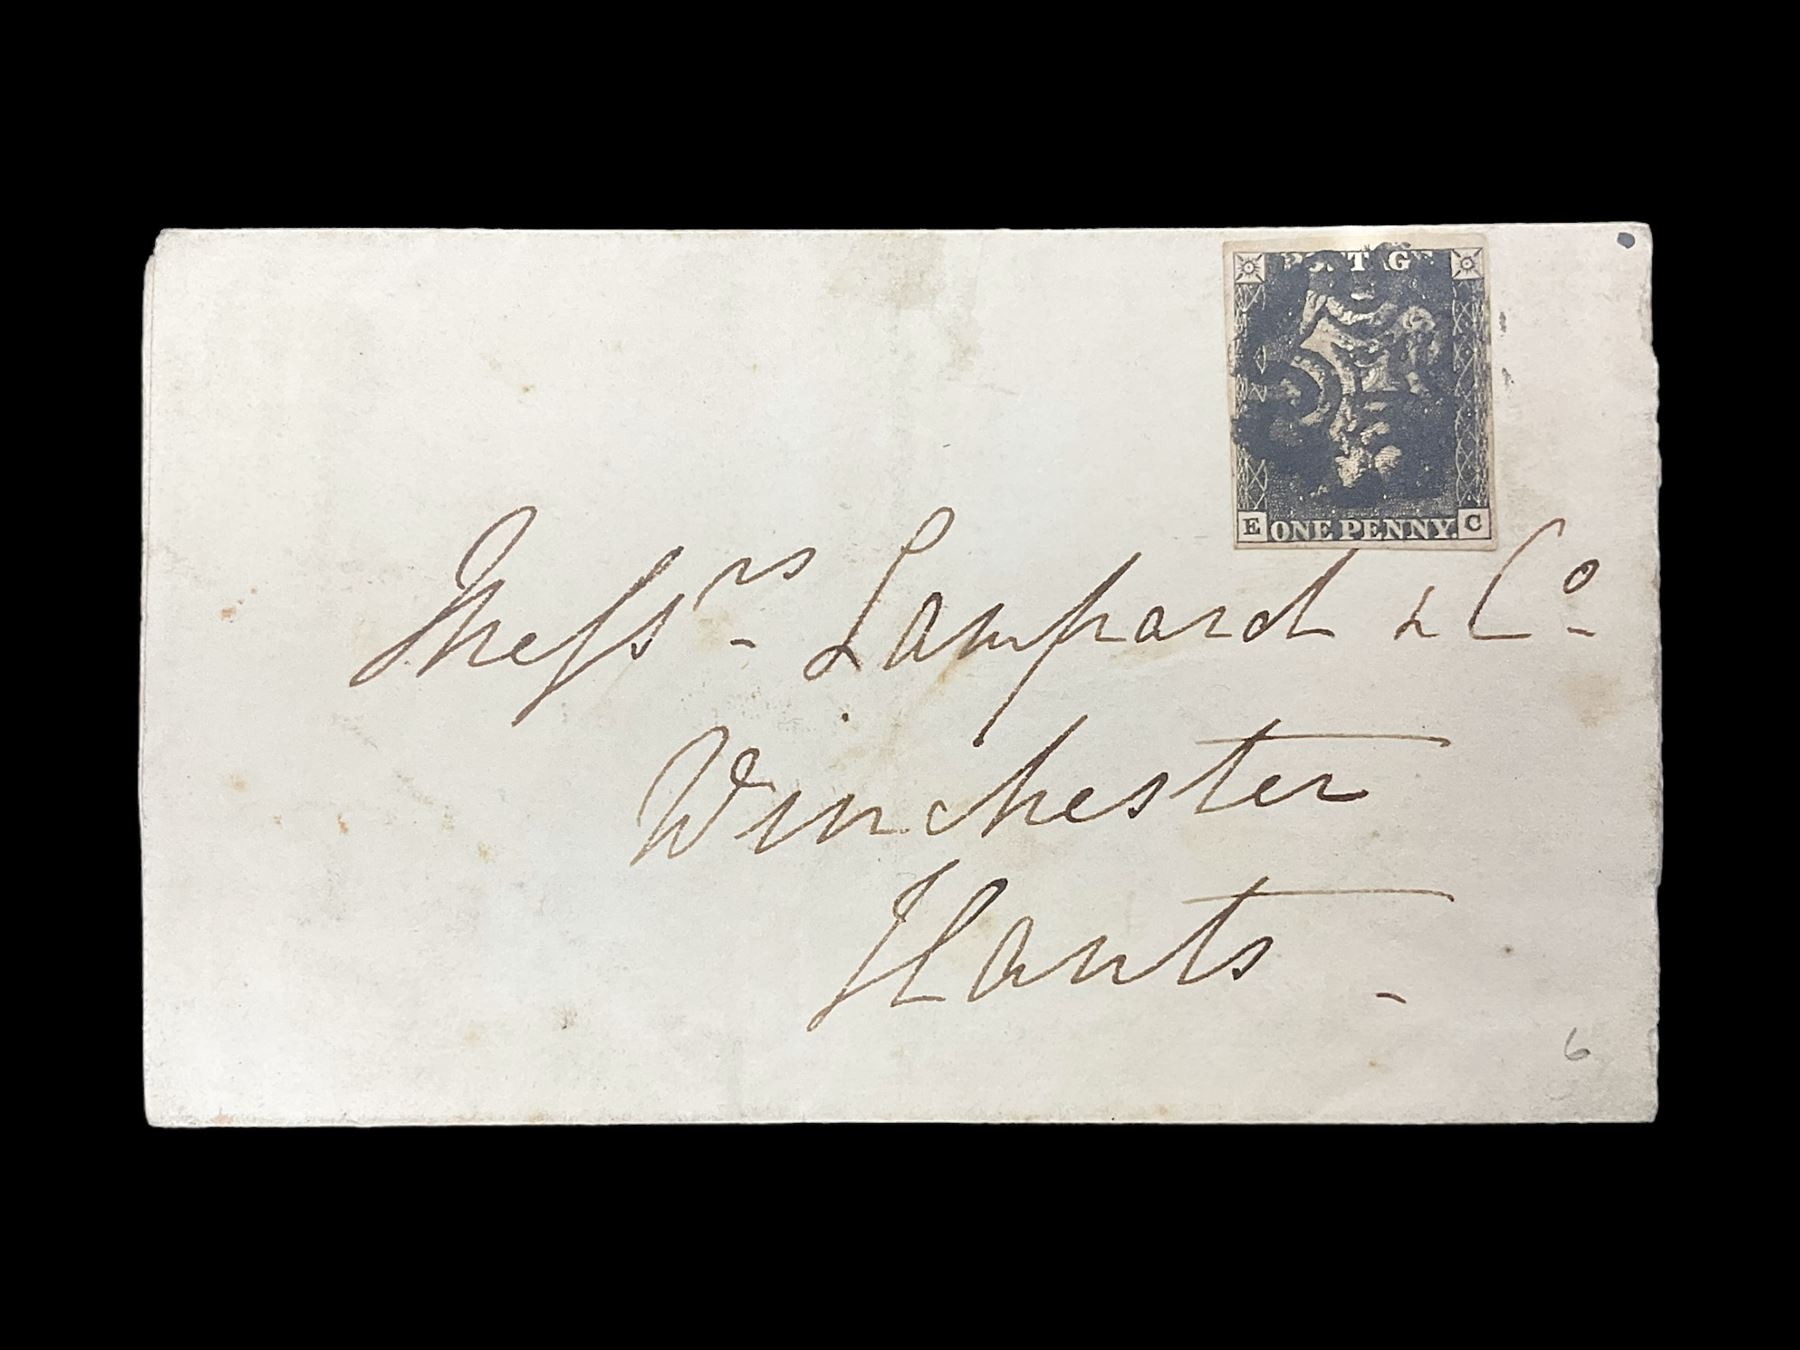 POSTAGE
E ONE PENNY. C
Messrs. Lampard & Co.
Winchester
Hants
6